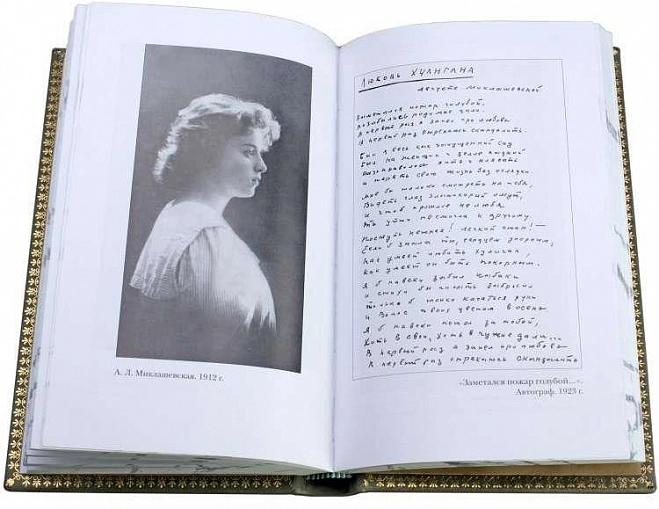 А. Л. Миклашевская. 1912 г.
Любовь хулигана
Августе Миклашевской
Заметался пожар голубой,
Позабылись родимые дали.
В первый раз я запел про любовь
В первый раз отрекаюсь скандалить.
Был я весь как запущенный сад
Был на женщин и зелие падкий
Разонравилось пить и плясать
И терять свою жизнь без оглядки
Мне бы только смотреть на тебя,
Видеть глаз златокарий омут,
И чтоб прошлое не любя,
Ты уйти не смогла к другому.
Поступь нежная! легкий стан! —
Если б знала ты, сердцем упорным,
Как умеет любить хулиган,
Как умеет он быть покорным.
Я б навеки забыл кабаки
И стихи бы писать забросил
Только б тонко касаться руки
И волос твоих цветом в осень
Я б навеки пошел за тобой,
Хоть в свои, хоть в чужие дали...
В первый раз я запел про любовь
В первый раз отрекаюсь скандалить
«Заметался пожар голубой...».
Автограф. 1923 г.